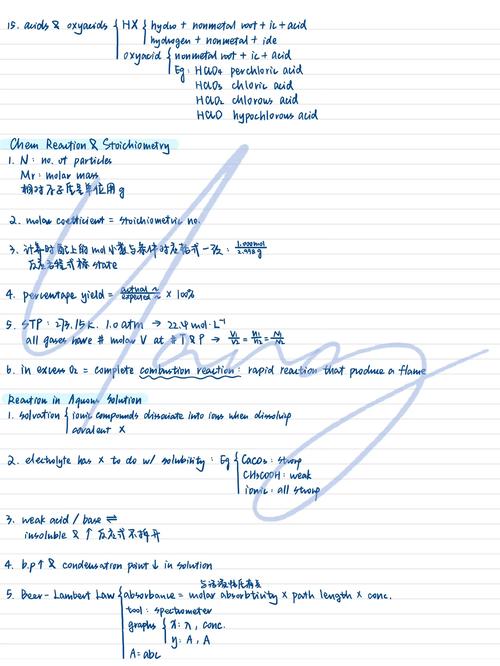 15. acids & oxyacids { HX { hydro + nonmetal root + ic + acid
hydrogen + nonmetal + ide
oxyacid { nonmetal root + ic + acid
Eg: HClO4 perchloric acid
HClO3 chloric acid
HClO2 chlorous acid
HClO hypochlorous acid
Chem Reaction & Stoichiometry
1. N: no. of particles
Mr: molar mass
相对分子质量单位用 g
2. molar coefficient = stoichiometric no.
3. 计算时配上的 mol 小数与条件时左格式一致: 1.000mol / 2.998g
反应方程式标 state
4. percentage yield = actual n / expected n × 100%
5. STP: 273.15k. 1.0 atm → 22.4 mol·L⁻¹
all gases have # molar V at # T & P → V1/V2 = n1/n2 = N1/N2
6. in excess O2 = complete combustion reaction: rapid reaction that produce a flame
Reaction in Aquous Solution
1. solvation { ionic compounds dissociate into ions when dissolving
covalent ×
2. electrolyte has × to do w/ solubility: Eg { CaCO3: strong
CH3COOH: weak
ionic: all strong
3. weak acid / base ⇌
insoluble & ↑ 反应式不拆开
4. b.p ↑ & condensation point ↓ in solution
与溶液性质有关
5. Beer-Lambert Law { absorbance = molar absorbtivity × path length × conc.
tool: spectrometer
graphs { x: λ, conc.
y: A, A
A = abc
Yang